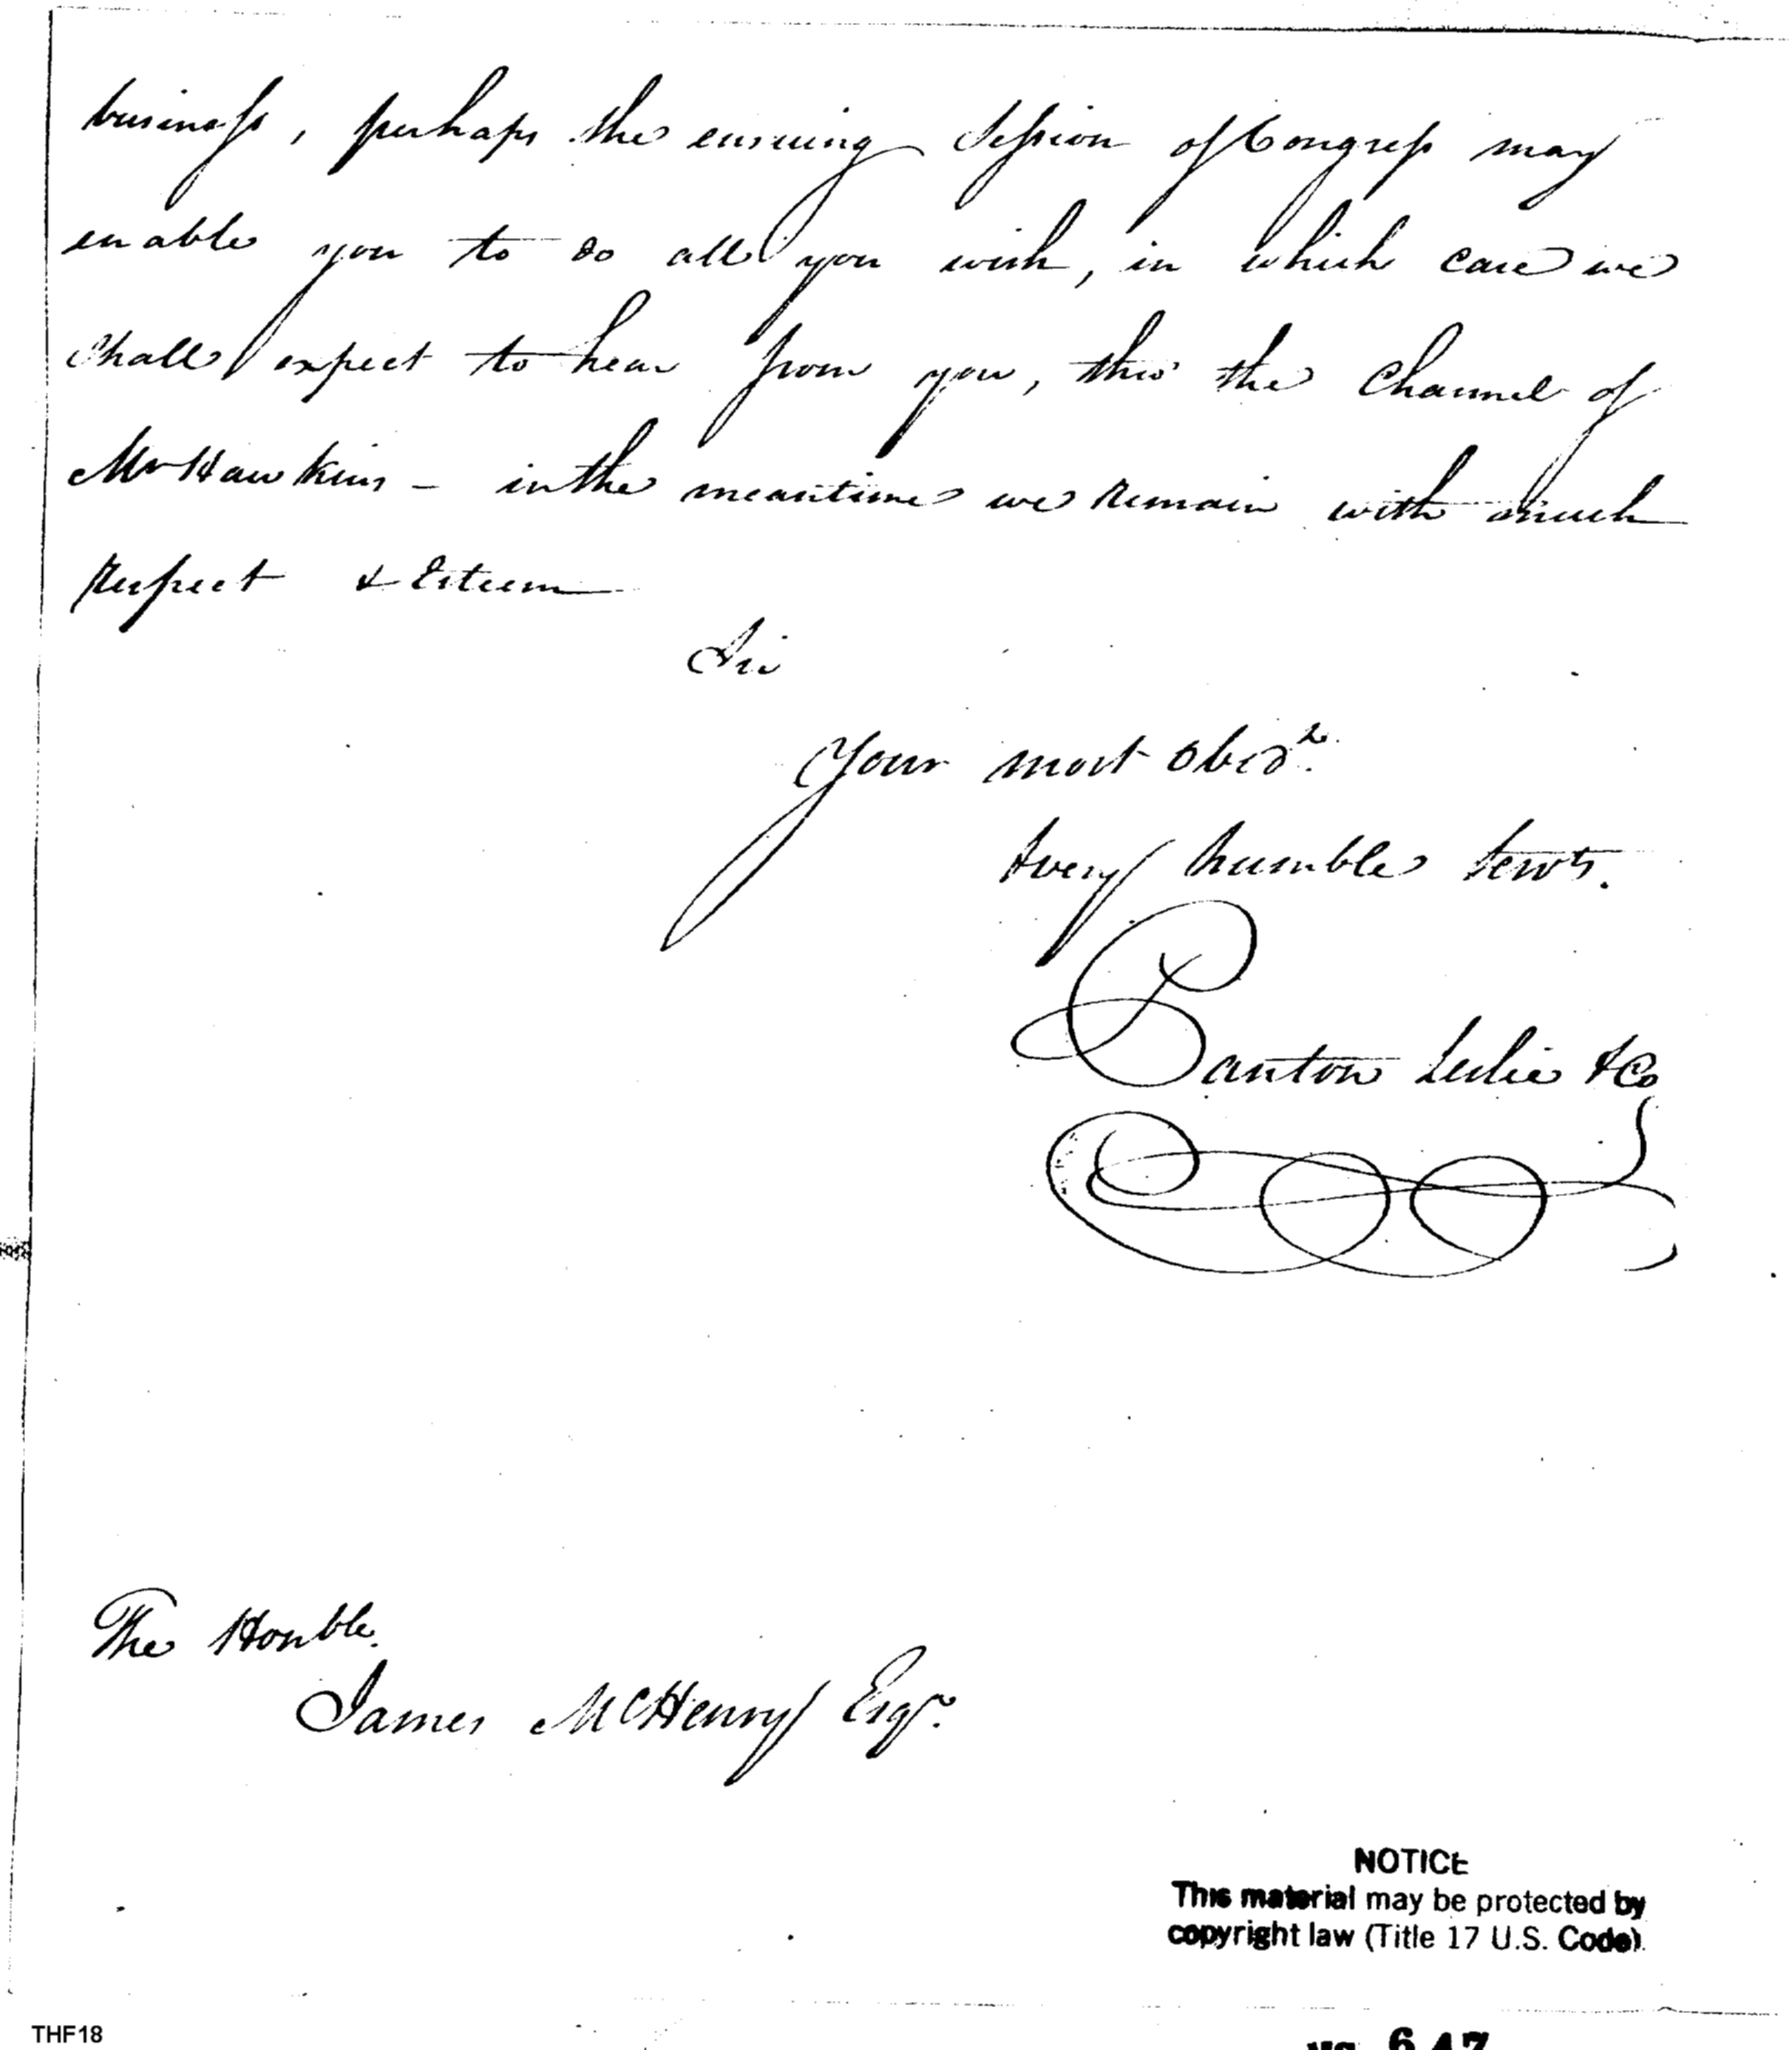 business, perhaps the ensuing Session of Congress may
enable you to do all you wish, in which case we
shall expect to hear from you, thro' the Channel of
Mr Hawkins – in the meantime we remain with much
respect & Esteem
Sir
Your most obedt.
& very humble servts.
Panton Leslie & Co
The Honble.
James McHenry Esqr.
NOTICE
This material may be protected by
copyright law (Title 17 U.S. Code).
THF18